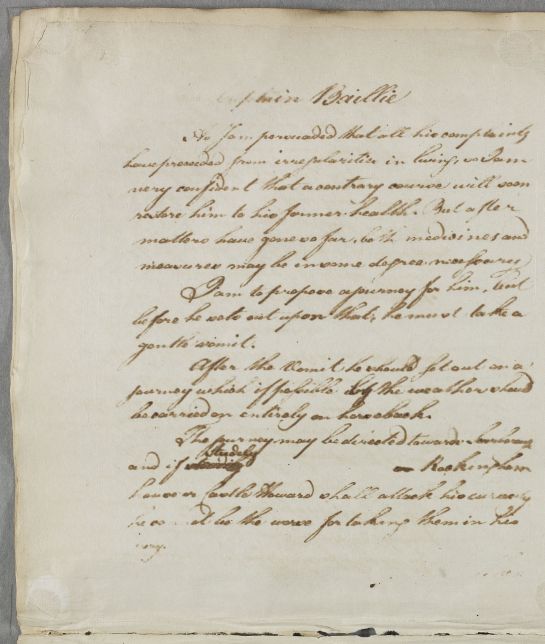 Captain Baillie
As I am persuaded that all his complaints
have proceeded from irregularities in living, so I am
very confident that a contrary course will soon
restore him to his former health. But after
matters have gone so far, both medicines and
measures may be in some degree necessary
I am to propose a journey for him, but
before he sets out upon that, he must take a
gentle vomit.
After the Vomit he should set out on a
journey which if possible by the weather should
be carried on entirely on horseback.
The journey may be directed towards
and if Studely or Rockingham
house or Castle Howard shall attack his curiosity
he be the worse for taking them in his